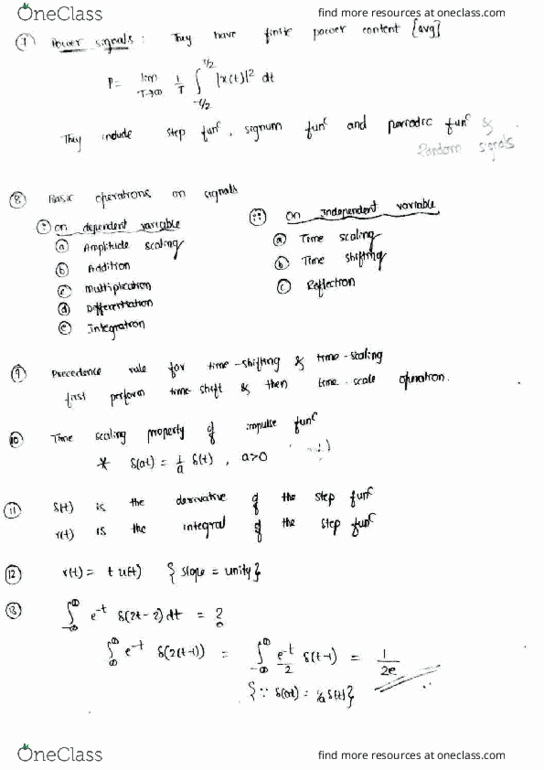 OneClass
find more resources at oneclass.com
⑦ Power signals : They have finite power content [avg]
P = lim T→∞ 1/T ∫_{-T/2}^{T/2} |x(t)|² dt
They include step funᶜ, signum funᶜ and periodic funᶜ &
Random signals
⑧ Basic operations on signals
ⓘ on dependent variable
ⓐ Amplitude scaling
ⓑ Addition
ⓒ Multiplication
ⓓ Differentiation
ⓔ Integration
ⓘⓘ on independent variable
ⓐ Time scaling
ⓑ Time shifting
ⓒ Reflection
⑨ Precedence rule for time-shifting & time-scaling
first perform time-shift & then time-scale operation.
⑩ Time scaling property of impulse funᶜ
* δ(at) = 1/a δ(t), a>0
⑪ δ(t) is the derivative of the step funᶜ
r(t) is the integral of the step funᶜ
⑫ r(t) = t u(t) { slope = unity }
⑬ ∫_{-∞}^{∞} e^{-t} δ(2t-2) dt = ?
∫_{∞}^{∞} e^{-t} δ(2(t-1)) = ∫_{-∞}^{∞} e^{-t}/2 δ(t-1) = 1/2e
{ ∵ δ(at) = 1/a δ(t) }
OneClass
find more resources at oneclass.com